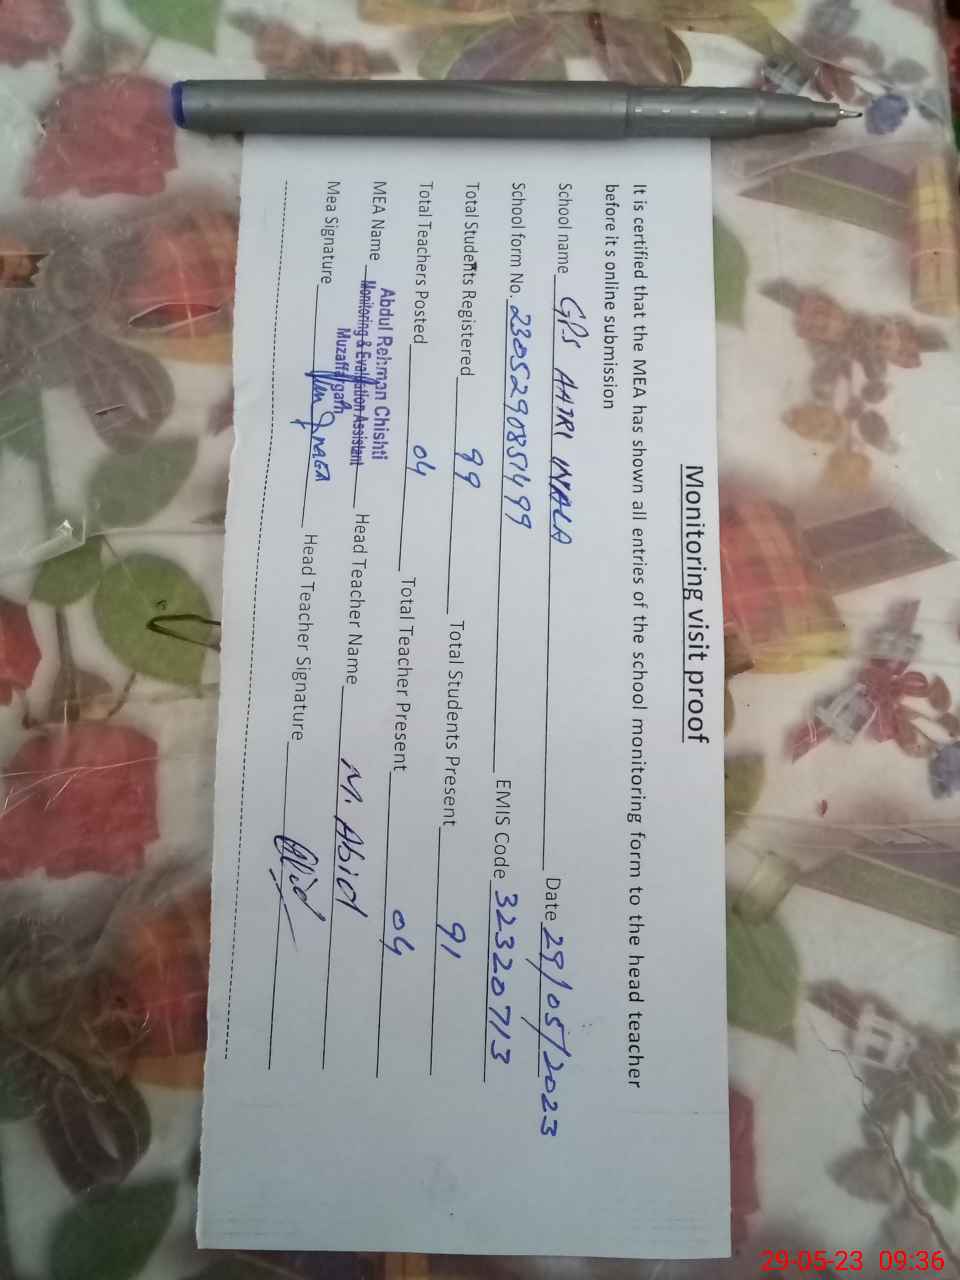 Monitoring visit proof
It is certified that the MEA has shown all entries of the school monitoring form to the head teacher
before it s online submission
School name GPS AHTRI WALA Date 29/05/2023
School form No. 2305290851499 EMIS Code 32320713
Total Students Registered 99 Total Students Present 91
Total Teachers Posted 04 Total Teacher Present 04
MEA Name Abdul Rehman Chishti Head Teacher Name M. Abid
Monitoring & Evaluation Assistant
Muzaffargarh
Mea Signature MEA Head Teacher Signature Abid
29-05-23 09:36